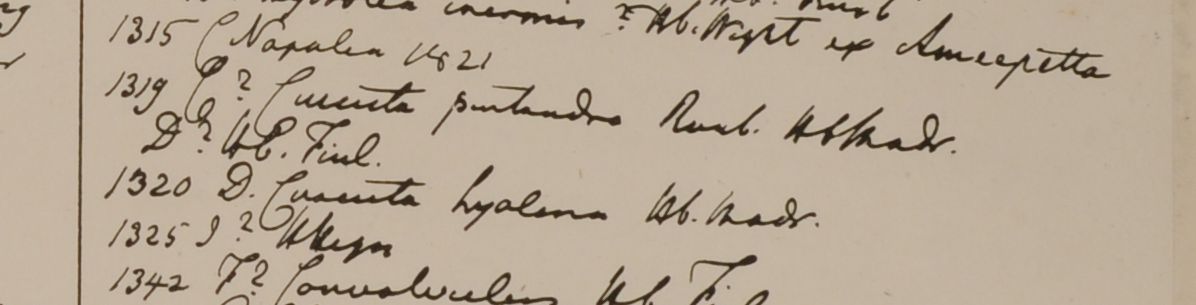 inermis ? Hb. Wight ex Ameepetta
1315 C Napalea 1821
1319 C? Cuscuta pentandra Roxb. Hb Madr.
D? HE. Finl.
1320 D. Cuscuta hyalina Hb. Madr.
1325 I?
1342 F? Convolvulus Hb. Fi